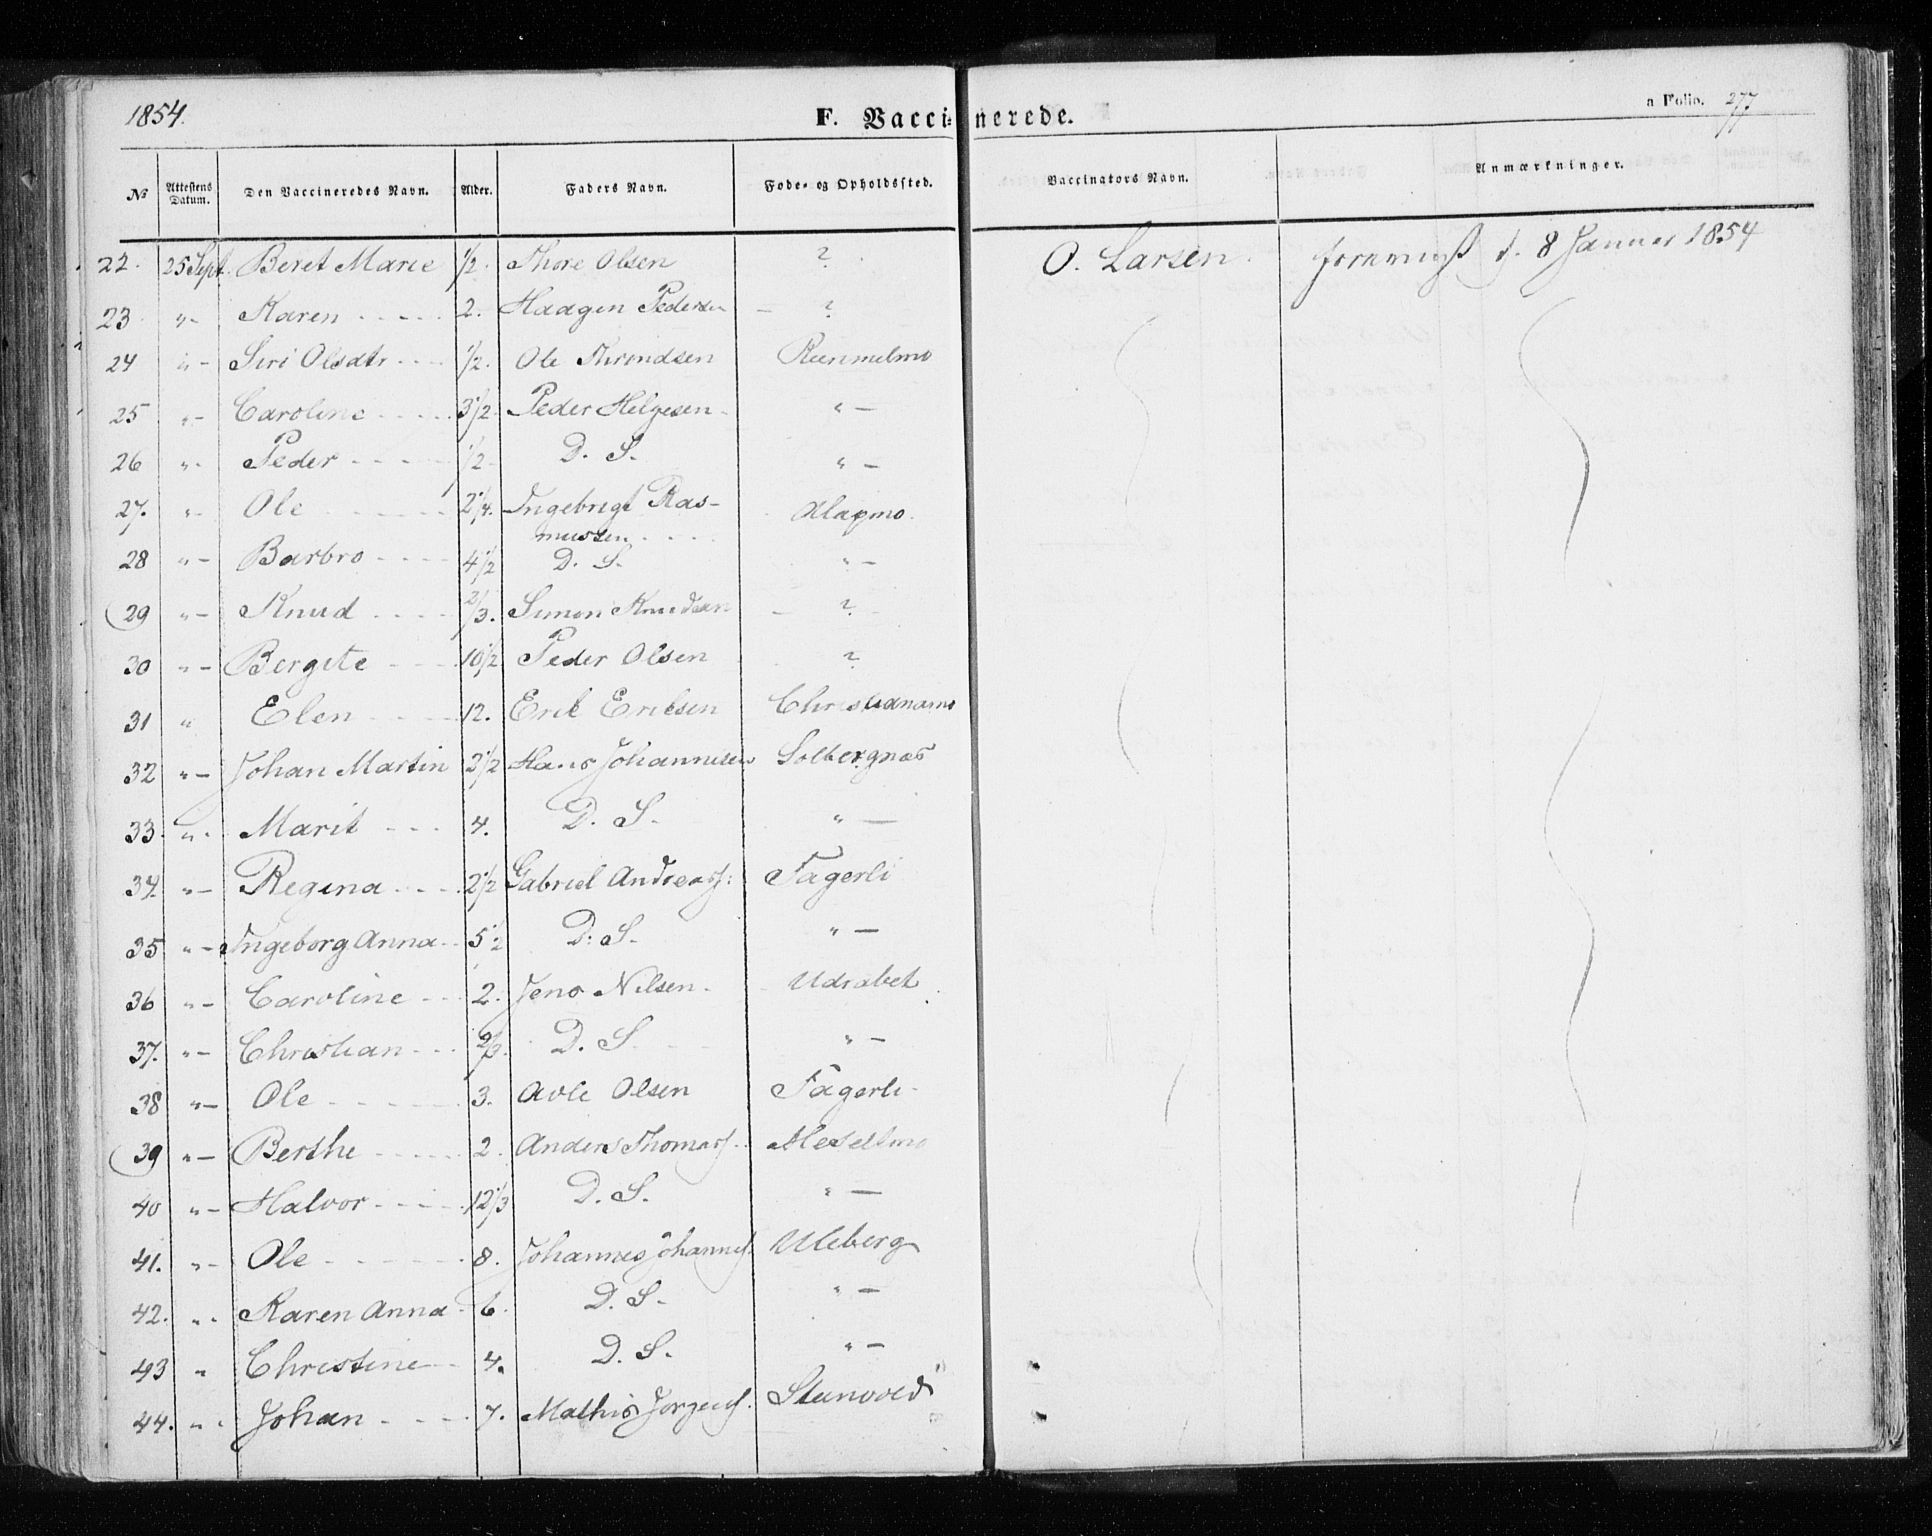 1854.
F. Vaccinerede.
a Folio. 277
No Attestens Datum. Den Vaccineredes Navn. Alder. Faders Navn. Fode- og Opholdssted. Vaccinators Navn. Anmærkninger.
22. 25 Sept. Beret Marie 1/2. Thore Olsen ? O. Larsen. d. 8 Januar 1854
23 "- Karen 2. Haagen Pedersen - ?
24 "- Siri Olsdatr 1/2. Ole Throndsen
25 "- Caroline 3 1/2 Peder Helgesen "-
26 "- Peder 1/2 D. S. "-
27. "- Ole 2 1/4. Ingebrigt Ras-
mussen
28 "- Barbro 4 1/2 D. S. "-
29 "- Knud 2/3. Simon Knudsen - ?
30 "- Bergite 10 1/2 Peder Olsen ?
31 " Elen 12. Erik Eriksen
32 "- Johan Martin 2 1/2 Hans Johannesen Solbergnæs
33. "- Marit 4. D. S. "-
34. "- Regina 2 1/2 Gabriel Andreass: Fagerli
35 "- Ingeborg Anna 5 1/2 D. S. "-
36 "- Caroline 2. Jens Nilsen
37. "- Christian 2/3. D. S. "-
38 "- Ole 3. Avle Olsen Fagerli
39 "- Berthe 2. Anders Thomass.
40 "- Halvor 12 1/3 D. S. "-
41. "- Ole 8. Johannes Johanness. Uleberg
42. "- Karen Anna 6. D. S. "-
43 " Christine 4. D. S. "-
44. "- Johan 7. Mathis Jørgens. Stenvold